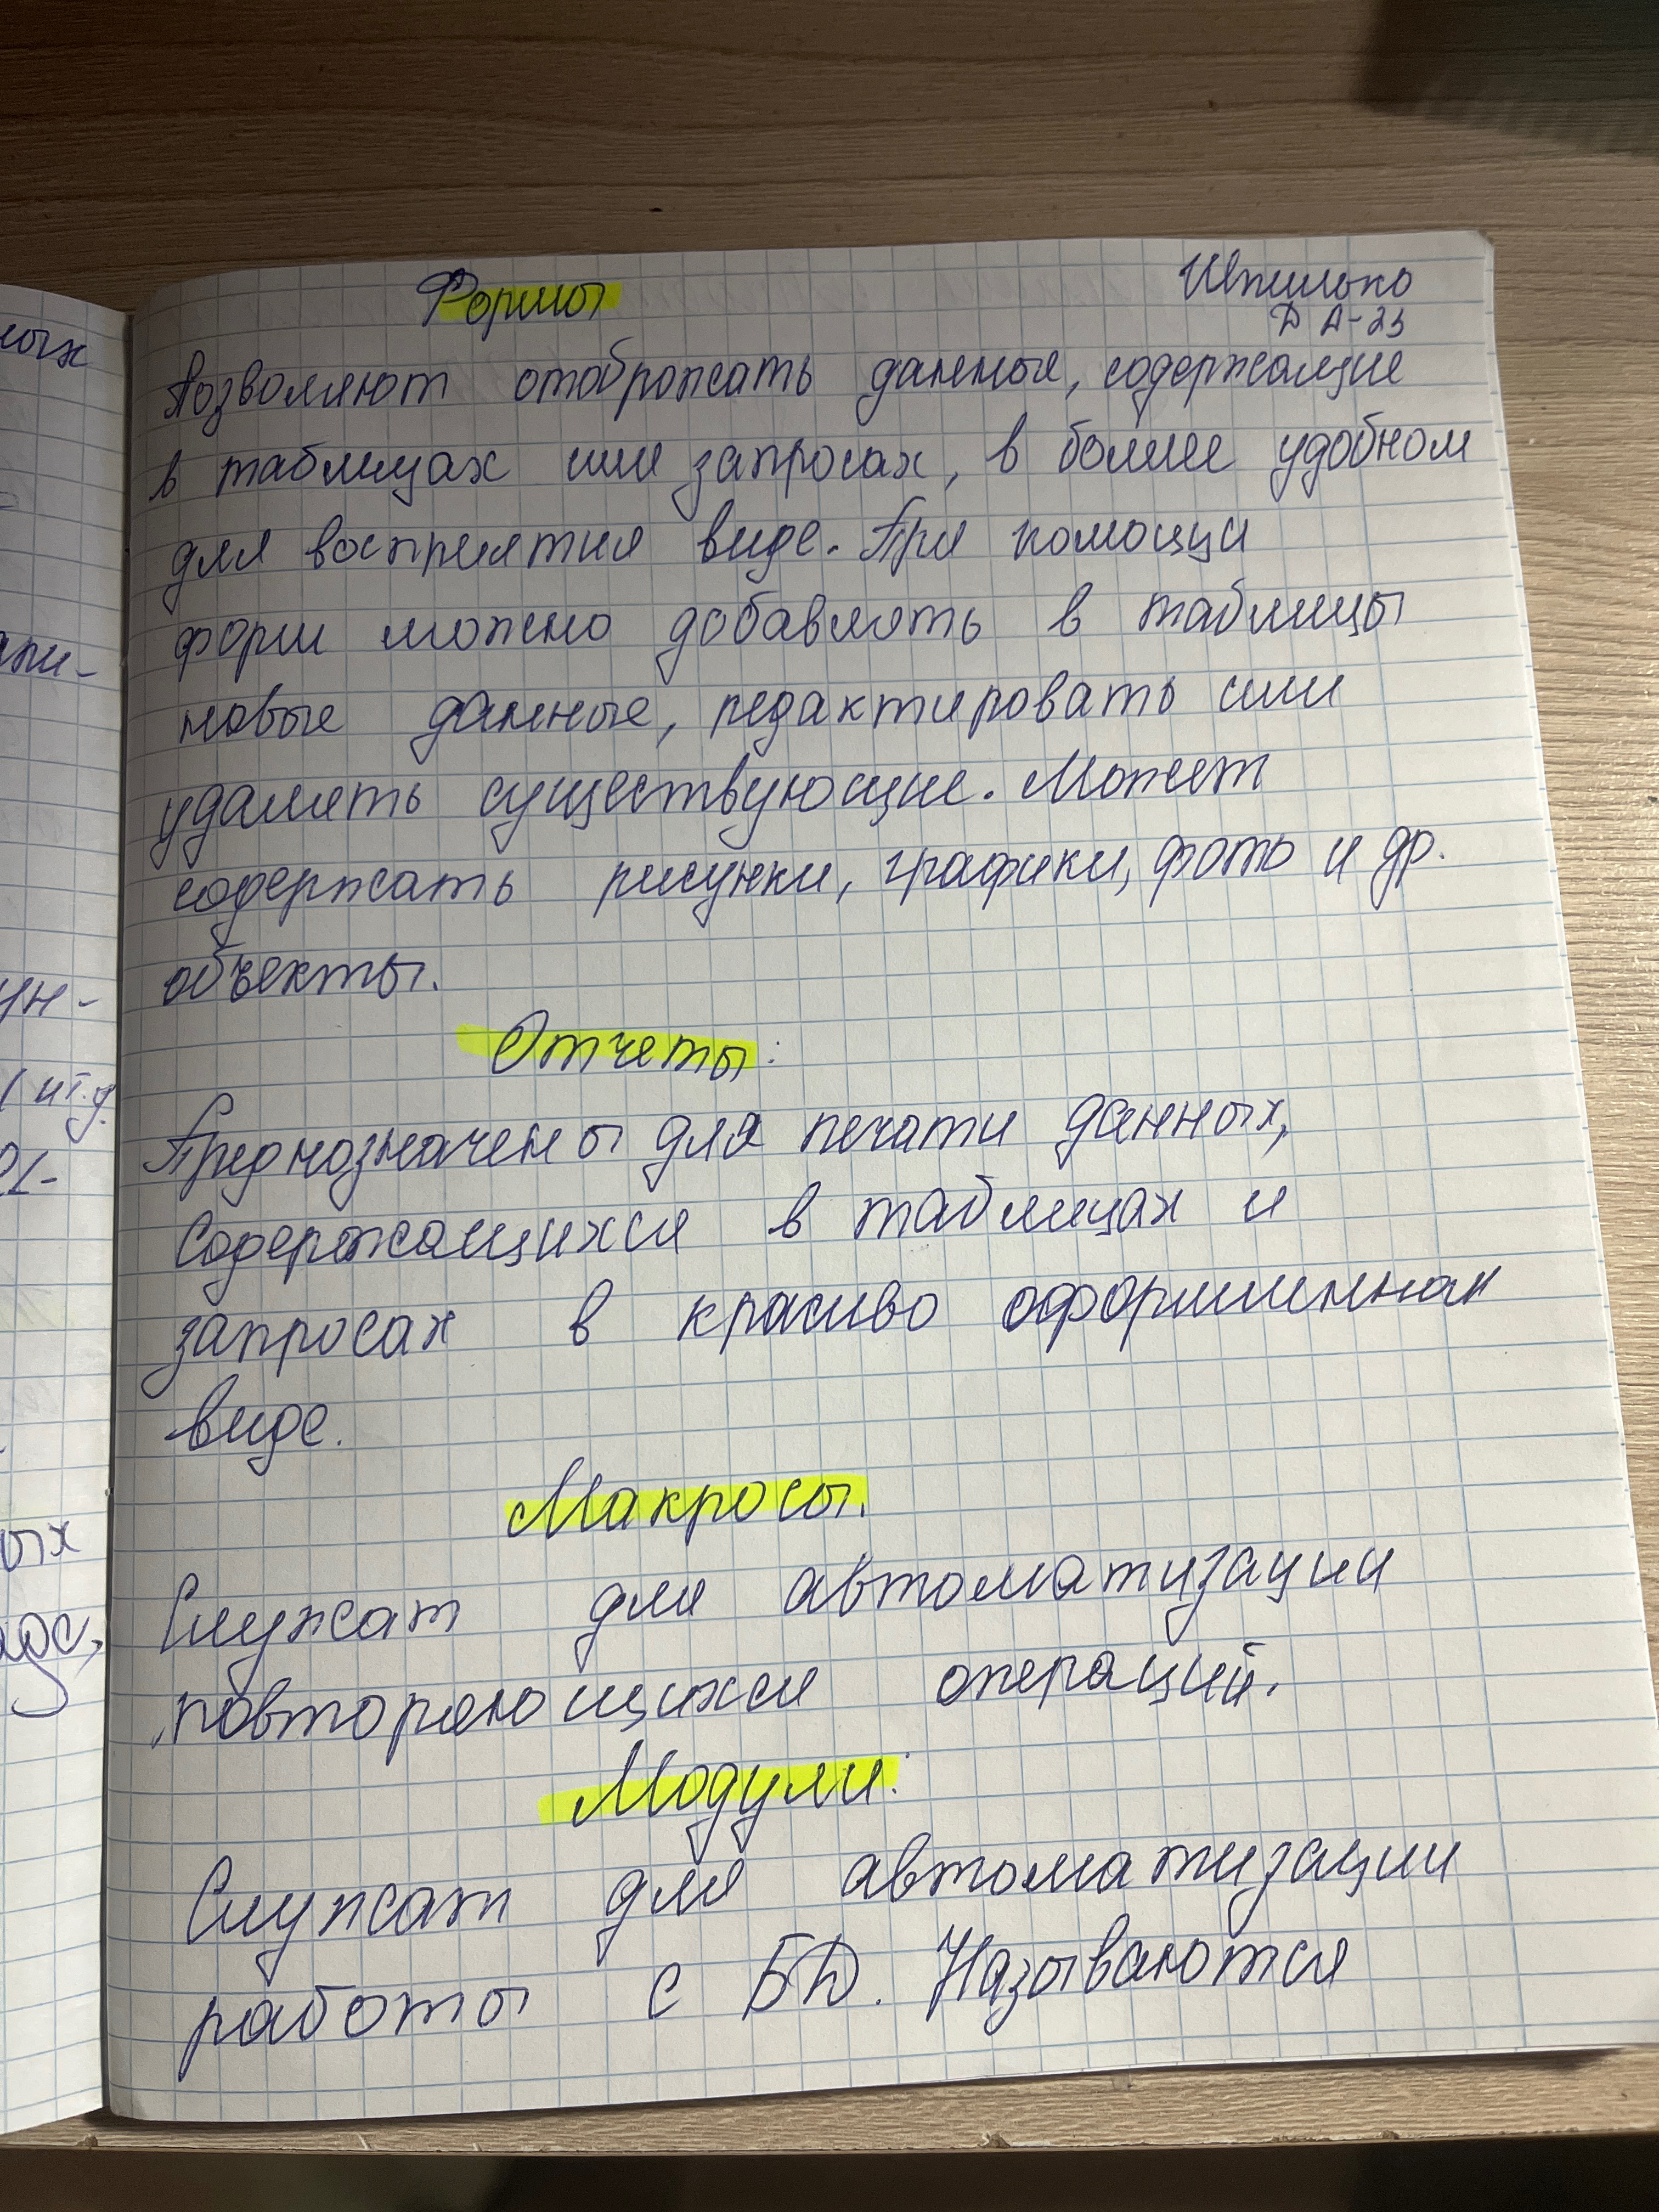 Формы
Шпилько
Д А-23
Позволяют отображать данные, содержащие
в таблицах или запросах, в более удобном
для восприятия виде. При помощи
форм можно добавлять в таблицы
новые данные, редактировать или
удалять существующие. Может
содержать рисунки, графики, фото и др.
объекты.
Отчеты:
Предназначены для печати данных,
содержащихся в таблицах и
запросах в красиво оформленном
виде.
Макросы.
Служат для автоматизации
повторяющихся операций.
Модули:
Служат для автоматизации
работы с БД. Называются
ных
ун-
и т.д.
ых